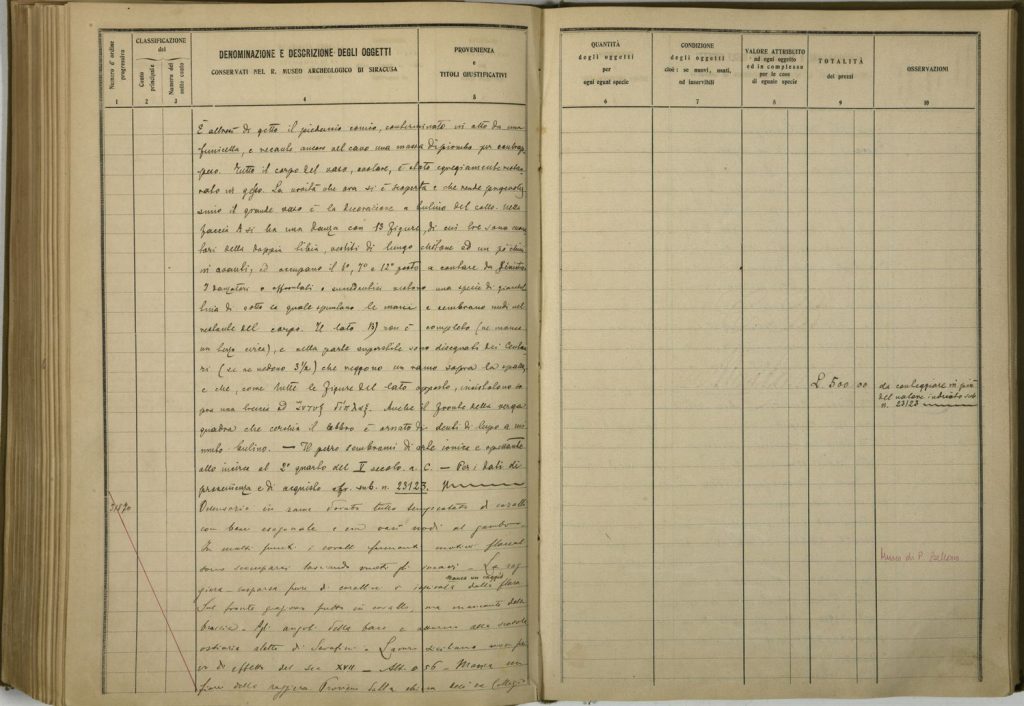 Numero d'ordine progressivo
CLASSIFICAZIONE
del
Conto principale
Numero del sotto conto
DENOMINAZIONE E DESCRIZIONE DEGLI OGGETTI
CONSERVATI NEL R. MUSEO ARCHEOLOGICO DI SIRACUSA
PROVENIENZA
e
TITOLI GIUSTIFICATIVI
1 2 3 4 5
È altresì di getto il piccolo conio, conterminato in alto da una
funicella, e recante ancora nel cavo una massa di piombo per contrap
peso. Tutto il corpo del vaso, ovolare, è stato egregiamente restau
rato in gesso. La novità che ora si è scoperta e che rende pregevolis
simo il grande vaso è la decorazione a bulino del collo. Nella
faccia A si ha una danza con 13 figure, di cui tre sono suona
tori della doppia tibia, vestiti di lungo chitone ed un po' chini
in avanti, ed occupano il 7° e 12° posto a contare da sinistra
I danzatori o affrontati o vestono una specie di
di sotto la quale spuntano le mani e sembrano nudi nel
restante del corpo. Il lato B) non è completo (ne manca
un terzo circa), e nella parte superstite sono disegnati dei Centau
ri (se ne vedono 3 1/2) che reggono un ramo sopra la spalla,
e che, come tutte le figure del lato opposto, insistono so
pra una treccia ad Anche il fronte della verga
quadra che cerchia il labbro è ornato di denti di lupo a mi
nuto bulino. — Il pezzo sembrami di arte ionica e spettante
allo incirca al 2° quarto del V secolo a. C. — Per i dati di
provenienza e di acquisto cfr. sub. n. 23123.
31170
Ostensorio in rame dorato tutto tempestato di coralli
con base esagonale e con vari nodi al gambo
In molti punti i coralli formanti motivi floreali
sono scomparsi lasciando vuoti gli incassi — La rag
manca un raggio
giera cosparsa pure di coralli
Sul fronte in corallo, ma mancante delle
braccia. Agli angoli della base e attorno alla
ostiaria alette di Serafini — Lavoro siciliano
di effetto del sec. XVII — Alt. 0.56 — Manca un
fiore della raggiera Proviene dalla chiesa del Collegio
QUANTITÀ
degli oggetti
per
ogni egual specie
CONDIZIONE
degli oggetti
cioè: se nuovi, usati,
od inservibili
VALORE ATTRIBUITO
ad ogni oggetto
ed in complesso
per le cose
di eguale specie
TOTALITÀ
dei prezzi
OSSERVAZIONI
6 7 8 9 10
L. 500 00
da conteggiare in più
del valore indicato sub
n. 23123
Museo di P. Bellomo